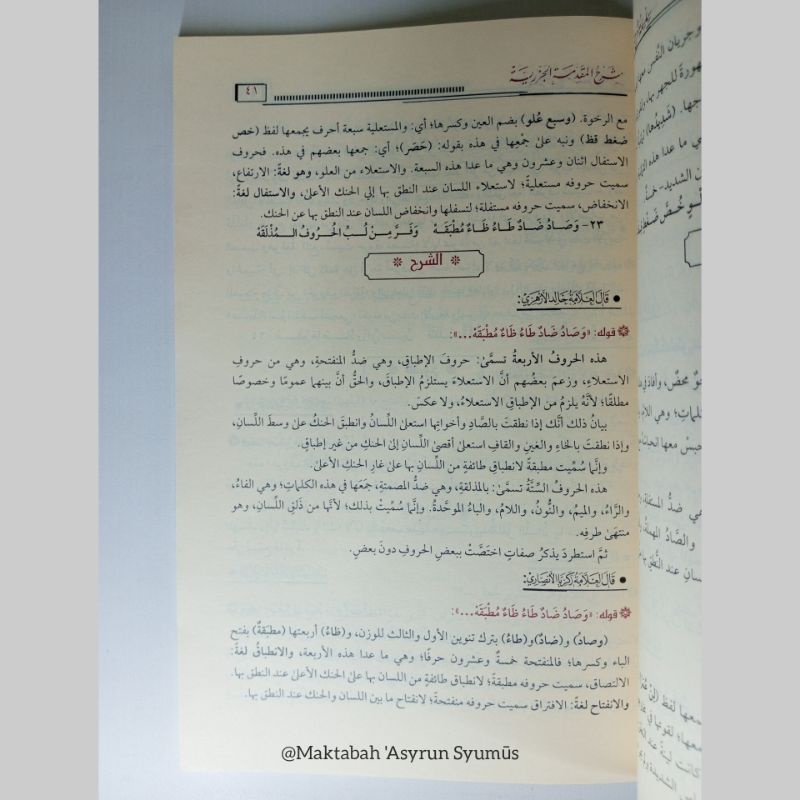 شرح المقدمة الجزرية
٤١
مع الرخوة. (وسبع عُلو) بضم العين وكسرها؛ أي: والمستعلية سبعة أحرف يجمعها لفظ (خص
ضغط قظ) ونبه على جمْعِها في هذه بقوله: (حَصَر)؛ أي: جمعها بعضهم في هذه. فحروف
الاستفال اثنان وعشرون وهي ما عدا هذه السبعة. والاستعلاء من العلو، وهو لغةً: الارتفاع،
سميت حروفه مستعليةً؛ لاستعلاء اللسان عند النطق بها إلي الحنك الأعلىٰ، والاستفال لغةً:
الانخفاض، سميت حروفه مستفلة؛ لتسفلها وانخفاض اللسان عند النطق بها عن الحنك.
٢٣- وَصَادُ ضَادٌ طَاءُ ظَاءٌ مُطْبَقَهْ وَفَرَّ مِنْ لُبِّ الحُرُوفُ المُذْلَقَهْ
الشرح
● قَالَ العَلَّامَةُ خَالِد الأَزْهَرِيّ:
قوله: «وَصَادُ ضَادٌ طَاءُ ظَاءٌ مُطْبَقَهْ...»:
هذه الحروفُ الأربعةُ تسمَّىٰ: حروفَ الإطباقِ، وهي ضدُّ المنفتحةِ، وهي من حروفِ
الاستعلاءِ، وزعمَ بعضُهم أنَّ الاستعلاءَ يستلزمُ الإطباقَ، والحقُّ أنَّ بينهما عمومًا وخصوصًا
مطلقًا؛ لأنَّهُ يلزمُ من الإطباقِ الاستعلاءُ، ولا عكسَ.
بيانُ ذلك أنَّك إذا نطقتَ بالصَّادِ وأخواتِها استعلىٰ اللِّسانُ وانطبقَ الحنكُ علىٰ وسطِ اللِّسانِ،
وإذا نطقتَ بالخاءِ والغينِ والقافِ استعلىٰ أقصىٰ اللِّسانِ إلىٰ الحنكِ من غيرِ إطباقٍ.
وإنَّما سُمِّيت مطبقةً لانطباقِ طائفةٍ من اللِّسانِ بها علىٰ غارِ الحنكِ الأعلىٰ.
هذه الحروفُ السِّتَّةُ تسمَّىٰ: بالمذلقةِ، وهي ضدُّ المصمتةِ، جمَعَها في هذه الكلماتِ؛ وهي الفاءُ،
والرَّاءُ، والميمُ، والنُّونُ، واللامُ، والباءُ الموحَّدةُ. وإنَّما سُمِّيتْ بذلك؛ لأنَّها من ذَلَقِ اللِّسانِ، وهو
منتهىٰ طرفِه.
ثمَّ استطردَ يذكرُ صفاتٍ اختَصَّتْ ببعضِ الحروفِ دونَ بعضٍ.
● قَالَ العَلَّامَةُ زَكَرِيَّا الأَنْصَارِيّ:
قوله: «وَصَادُ ضَادٌ طَاءُ ظَاءٌ مُطْبَقَهْ...»:
(وصادُ) و(ضادٌ)و(طاءُ) بترك تنوين الأول والثالث للوزن، و(ظاءٌ) أربعتها (مطبَقةٌ) بفتح
الباء وكسرها؛ فالمنفتحة خمسةٌ وعشرون حرفًا؛ وهي ما عدا هذه الأربعة، والانطباقُ لغةً:
الالتصاق، سميت حروفه مطبقةً؛ لانطباق طائفةٍ من اللسان بها علىٰ الحنك الأعلىٰ عند النطق بها.
والانفتاح لغةً: الافتراق سميت حروفه منفتحةً؛ لانفتاح ما بين اللسان والحنك عند النطق بها.
@Maktabah 'Asyrun Syumūs